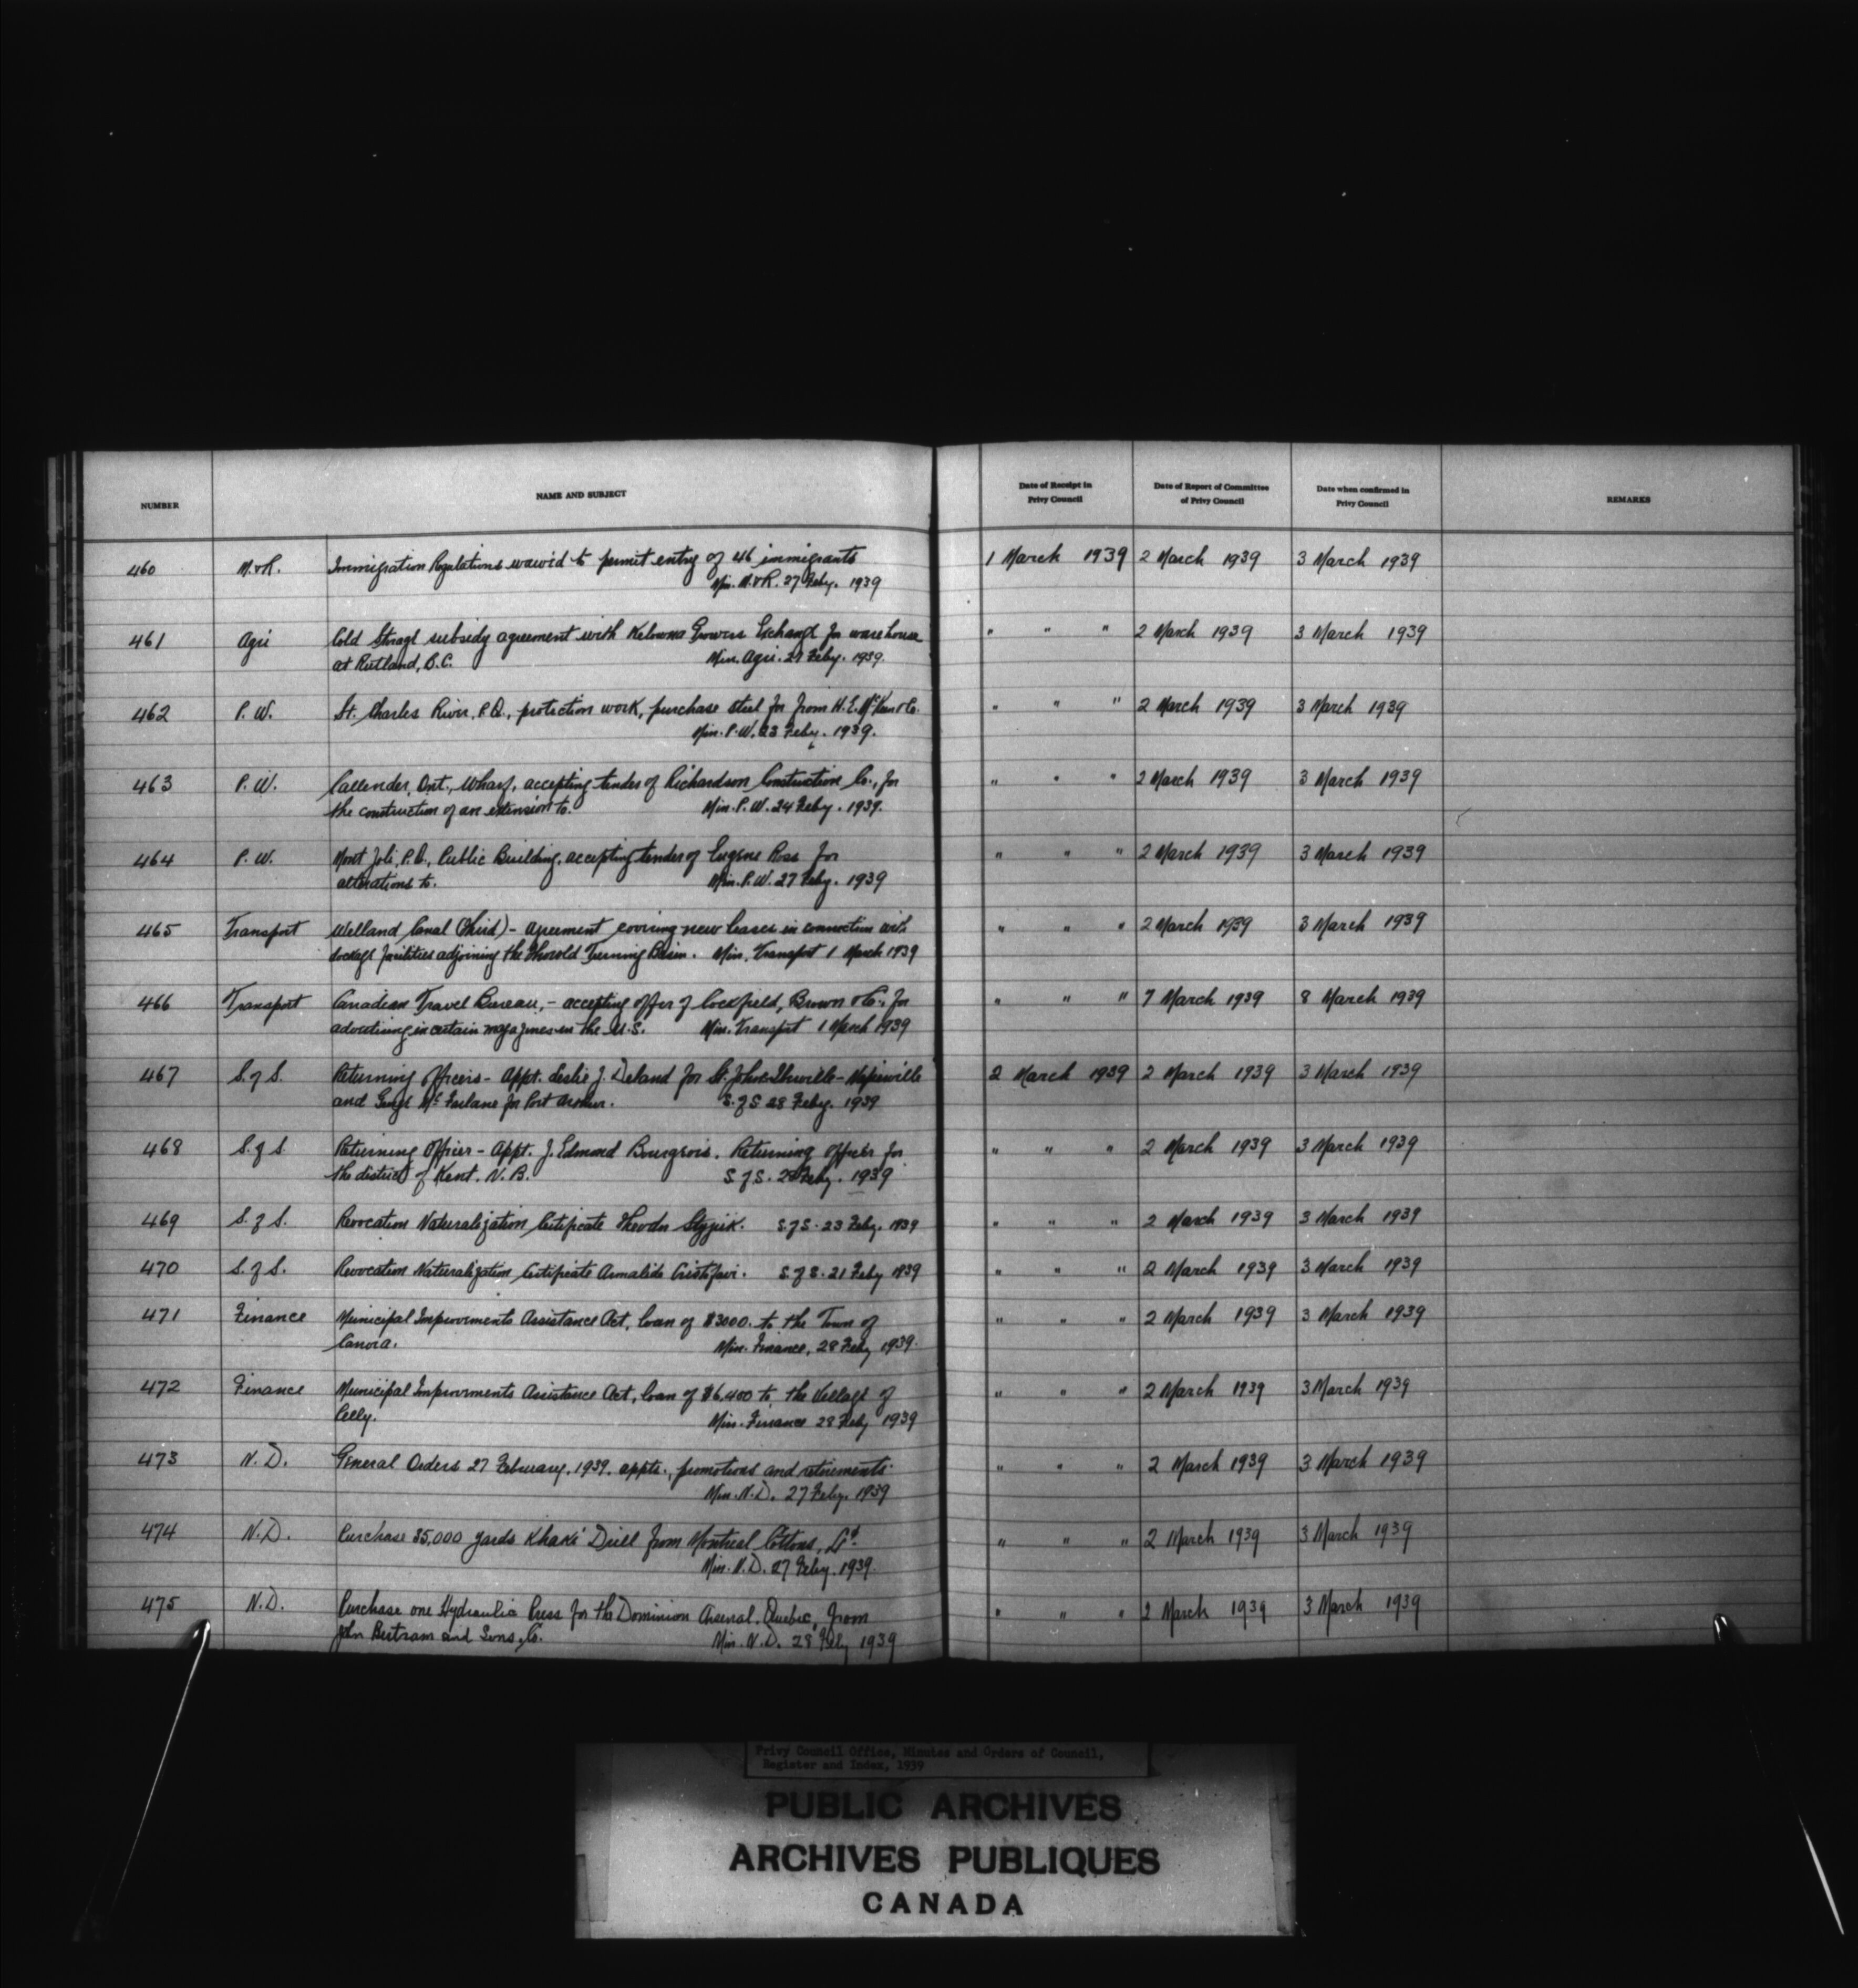 NUMBER NAME AND SUBJECT Date of Receipt in Privy Council Date of Report of Committee of Privy Council Date when confirmed in Privy Council REMARKS
460 M.&R. Immigration Regulations waived to permit entry of 46 immigrants 1 March 1939 2 March 1939 3 March 1939
Min. M.&R. 27 Feby. 1939
461 Agri Cold Storage subsidy agreement with Kelowna Growers Exchange for warehouse " " " 2 March 1939 3 March 1939
at Rutland, B.C. Min. Agri. 27 Feby. 1939.
462 P.W. St. Charles River, P.Q., protection work, purchase steel for from H.E. McKeen & Co. " " " 2 March 1939 3 March 1939
Min. P.W. 23 Feby. 1939.
463 P.W. Callender, Ont., Wharf, accepting tender of Richardson Construction Co., for " " " 2 March 1939 3 March 1939
the construction of an extension to. Min. P.W. 24 Feby. 1939.
464 P.W. Mont Joli, P.Q., Public Building, accepting tender of Eugene Ross for " " " 2 March 1939 3 March 1939
alterations to. Min. P.W. 27 Feby. 1939
465 Transport Welland Canal (Third) - agreement covering new leases in connection with " " " 2 March 1939 3 March 1939
dockage facilities adjoining the Thorold Turning Basin. Min. Transport 1 March 1939
466 Transport Canadian Travel Bureau, - accepting offer of Cockfield, Brown & Co., for " " " 7 March 1939 8 March 1939
advertising in certain magazines in the U.S. Min. Transport 1 March 1939
467 S. of S. Returning Officers - Appt. Leslie J. Deland for St. Johns-Iberville-Napierville 2 March 1939 2 March 1939 3 March 1939
and McFarlane for Port Arthur. S. of S. 28 Feby. 1939
468 S. of S. Returning Officer - Appt. J. Edmond Bourgeois. Returning Officer for " " " 2 March 1939 3 March 1939
the district of Kent. N.B. S. of S. Feby. 1939
469 S. of S. Revocation Naturalization Certificate Theodor S. of S. 23 Feby. 1939 " " " 2 March 1939 3 March 1939
470 S. of S. Revocation Naturalization Certificate S. of S. 21 Feby 1939 " " " 2 March 1939 3 March 1939
471 Finance Municipal Improvements Assistance Act, loan of $3000. to the Town of " " " 2 March 1939 3 March 1939
Canora. Min. Finance, 28 Feby 1939.
472 Finance Municipal Improvements Assistance Act, loan of $6,400 to the Village of " " " 2 March 1939 3 March 1939
Pelly. Min. Finance 28 Feby 1939
473 N.D. General Orders 27 February, 1939. appts., promotions and retirements. " " " 2 March 1939 3 March 1939
Min. N.D. 27 Feby. 1939
474 N.D. Purchase 35,000 yards Khaki Drill from Montreal Cottons, Ltd. " " " 2 March 1939 3 March 1939
Min. N.D. 27 Feby. 1939.
475 N.D. Purchase one Hydraulic Press for the Dominion Arsenal, Quebec, from " " " 2 March 1939 3 March 1939
John Bertram and Sons, Co. Min. N.D. 28 Feby 1939
Privy Council Office, Minutes and Orders of Council,
Register and Index, 1939
PUBLIC ARCHIVES
ARCHIVES PUBLIQUES
CANADA